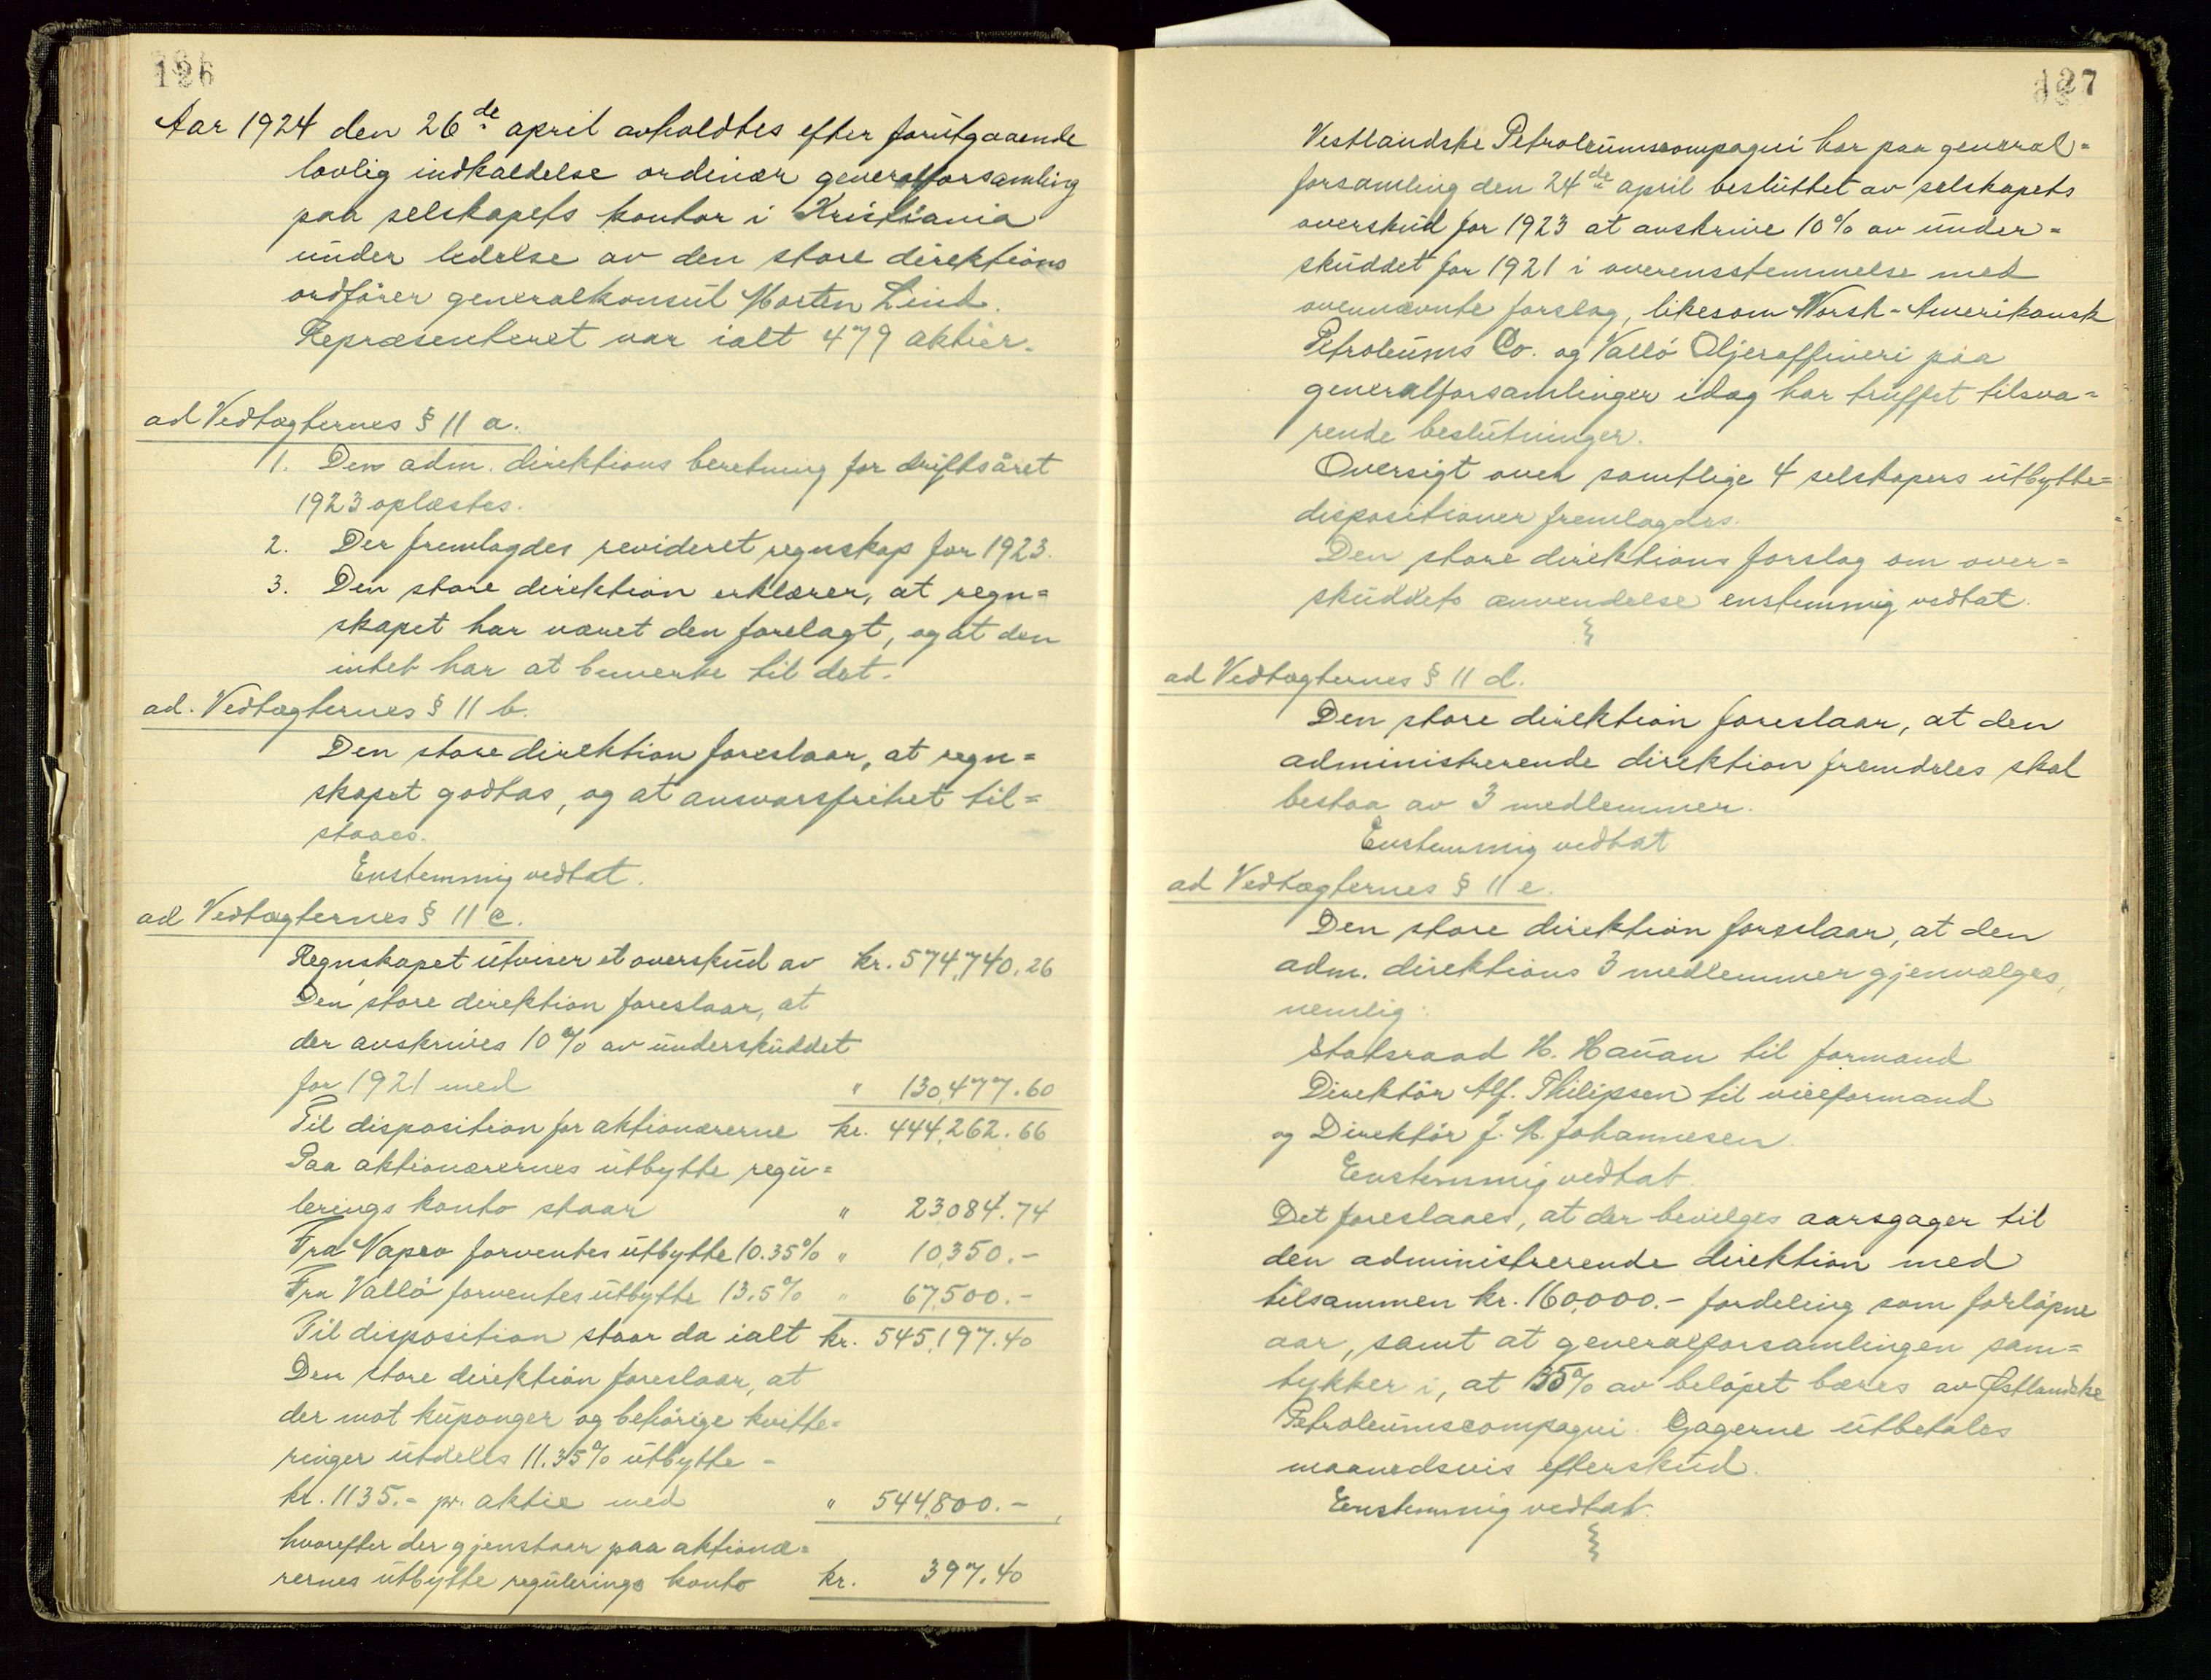 126
Aar 1924 den 26de april avholdtes efter forutgaaende
lovlig indkaldelse ordinær generalforsamling
paa selskapets kontor i Kristiania
under ledelse av den store direktions
ordfører generalkonsul Morten Lind.
Repræsenteret var ialt 479 aktier.
ad Vedtægternes § 11 a.
1. Den adm. direktions beretning for driftsåret
1923 oplæstes.
2. Der fremlagdes revideret regnskap for 1923.
3. Den store direktion erklærer, at regn=
skapet har været den forelagt, og at den
intet har at bemerke til det.
ad. Vedtægternes § 11 b.
Den store direktion foreslaar, at regn=
skapet godtas, og at ansvarsfrihet til=
staaes.
Enstemmig vedtat.
ad Vedtægternes § 11 c.
Regnskapet utviser et overskud av kr. 574,740.26
Den store direktion foreslaar, at
der avskrives 10% av underskuddet
for 1921 med " 130,477.60
Til disposition for aktionærerne kr. 444,262.66
Paa aktionærernes utbytte regu=
lerings konto staar " 23084.74
Fra Vapeo forventes utbytte 10.35% " 10,350.-
Fra Vallö forventes utbytte 13.5% " 67,500.-
Til disposition staar da ialt kr. 545,197.40
Den store direktion foreslaar, at
der mot kuponger og behörige kvitte=
ringer utdeles 11.35% utbytte -
kr. 1135.- pr. aktie med " 544,800.-
hvorefter der gjenstaar paa aktionæ=
rernes utbytte regulerings konto kr. 397.40
127
Vestlandske Petroleumscompagni har paa general=
forsamling den 24de april besluttet av selskapets
overskud for 1923 at avskrive 10% av under=
skuddet for 1921 i overensstemmelse med
ovennævnte forslag, likesom Norsk-Amerikansk
Petroleums Co. og Vallö Oljeraffineri paa
generalforsamlinger idag har truffet tilsva=
rende beslutninger.
Oversigt over samtlige 4 selskapers utbytte=
dispositioner fremlagdes.
Den store direktions forslag om over=
skuddets anvendelse enstemmig vedtat.
ad Vedtægternes § 11 d.
Den store direktion foreslaar, at den
administrerende direktion fremdeles skal
bestaa av 3 medlemmer.
Enstemmig vedtat
ad Vedtægternes § 11 e.
Den store direktion foreslaar, at den
adm. direktions 3 medlemmer gjenvælges,
nemlig:
Statsraad H. Hauan til formand
Direktör Alf. Philipsen til viceformand
og Direktör J. A. Johannesen.
Enstemmig vedtat.
Det foreslaaes, at der bevilges aarsgager til
den administrerende direktion med
tilsammen kr. 160,000.- fordeling som forløpne
aar, samt at generalforsamlingen sam=
tykker i, at 35% av beløpet bæres av Østlandske
Petroleumscompagni. Gagerne utbetales
maanedsvis efterskud.
Enstemmig vedtat.